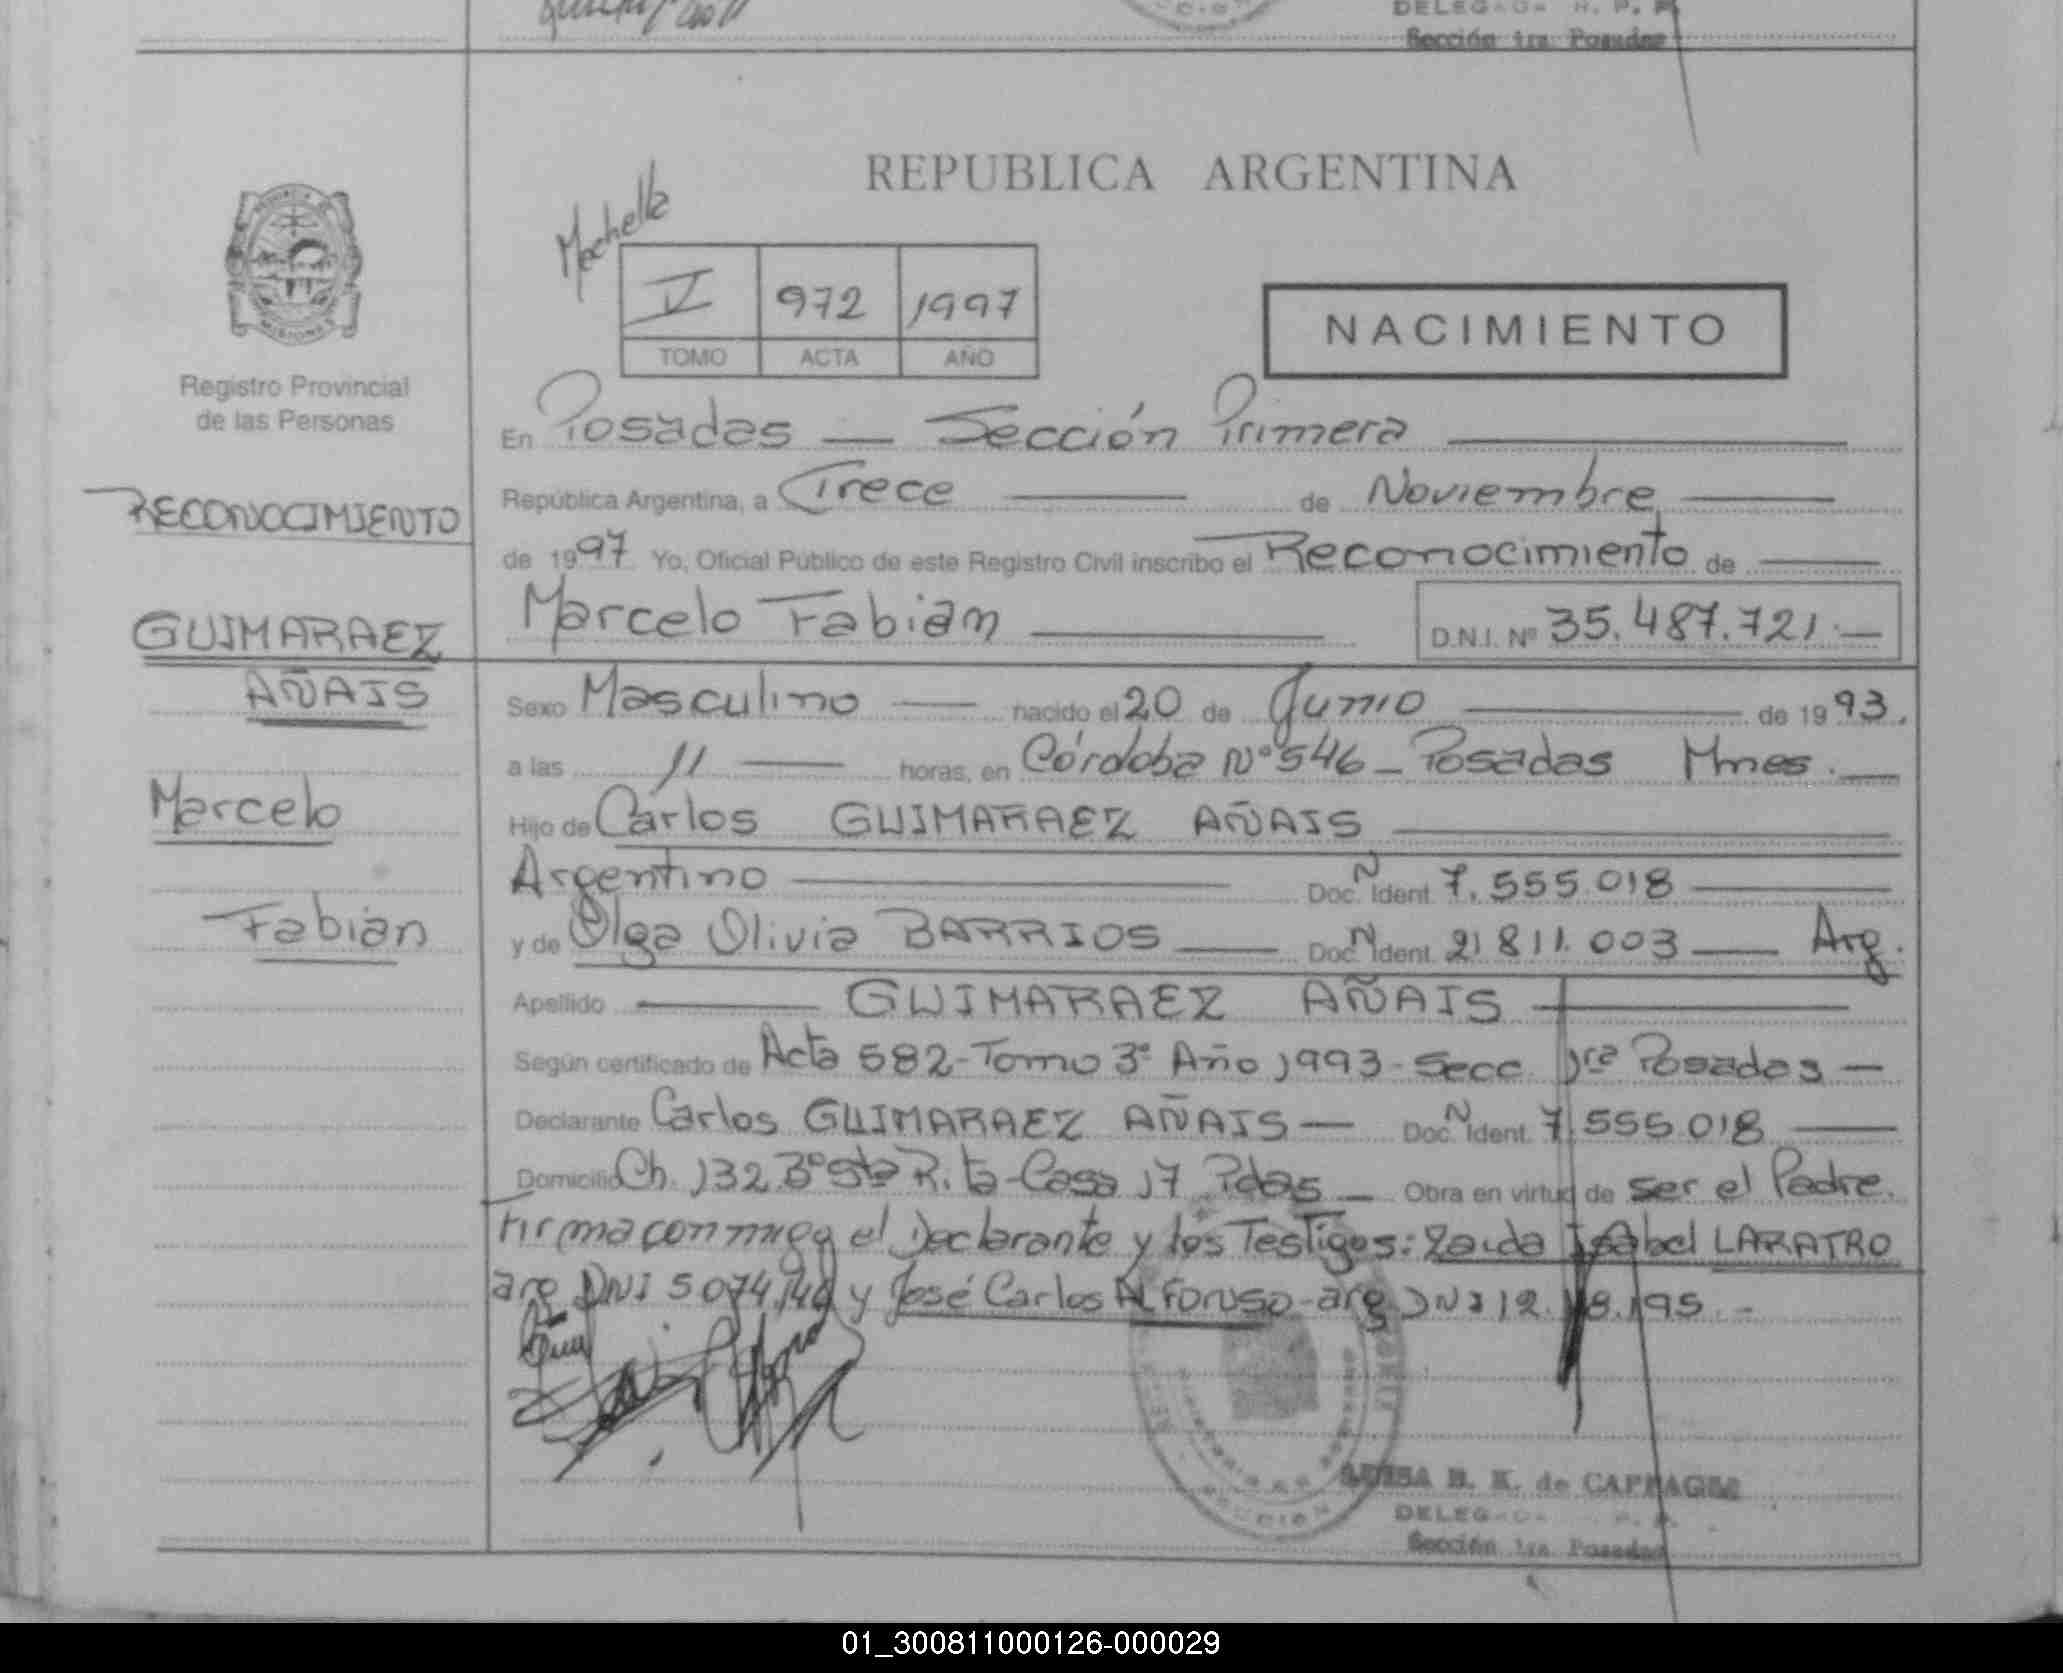 DELEGADA R. P. P.
Sección 1ra. Posadas
REPUBLICA ARGENTINA
V 972 1997
TOMO ACTA AÑO
NACIMIENTO
MISIONES
Registro Provincial
de las Personas
RECONOCIMIENTO
GUIMARAEZ
AÑAIS
Marcelo
Fabián
En Posadas — Sección Primera
República Argentina, a Trece de Noviembre
de 1997 Yo, Oficial Público de este Registro Civil inscribo el Reconocimiento de
Marcelo Fabián D.N.I. Nº 35.487.721.—
Sexo Masculino — nacido el 20 de Junio de 1993.
a las 11 — horas, en Córdoba Nº 546 – Posadas Mnes.
Hijo de Carlos GUIMARAEZ AÑAIS
Argentino Doc. N Ident. 7.555.018
y de Olga Olivia BARRIOS — Doc. N Ident. 21811.003 — Arg.
Apellido — GUIMARAEZ AÑAIS
Según certificado de Acta 582-Tomo 3º Año 1993-Secc. 1ra Posadas —
Declarante Carlos GUIMARAEZ AÑAIS — Doc. N Ident. 7.555.018
Domicilio Ch. 132 Bº Sta Rita-Casa 17 Pdas — Obra en virtud de ser el Padre.
Firma conmigo el Declarante y los Testigos: Zaida Isabel LARATRO
arg DNI y José Carlos ALFONSO-arg. DNI
LUISA B. K. de
DELEGADA
Sección 1ra. Posadas
01_300811000126-000029